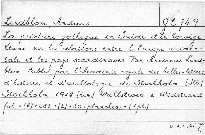 Lindblom Andreas 92.349
La peinture gothique en Suède et en Norvège
Étude sur les relations entre l'Europe occiden-
tale et les pays scandinaves Par Andreas Lind-
blom Publié par l'Académie royale des belles-lettres
d'histoire et d'antiquités de Stockholm
Stockholm 1916 Wahlström & Widstrand